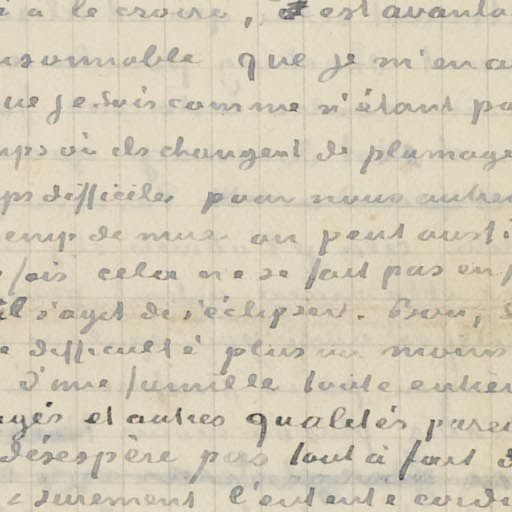 à le croire, c'est avanta
nsonnable que je m'en a
ue je sois comme n'étant pa
mps où ils changent de plumage
ps difficile pour nous autres
emp de mue on peut aussi
fois cela ne se fait pas en p
il s'agit de s'éclipser. Bon,
e difficulté plus ou moins
d'une famille toute entièr
gés et autres qualités pare
désespère pas tout à fait d
surement l'entente cordi